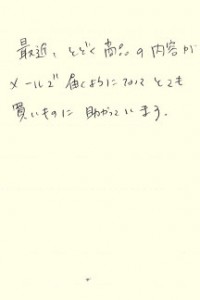 最近、とどく商品の内容が
メールで届くようになってとても
買いものに助かっています。